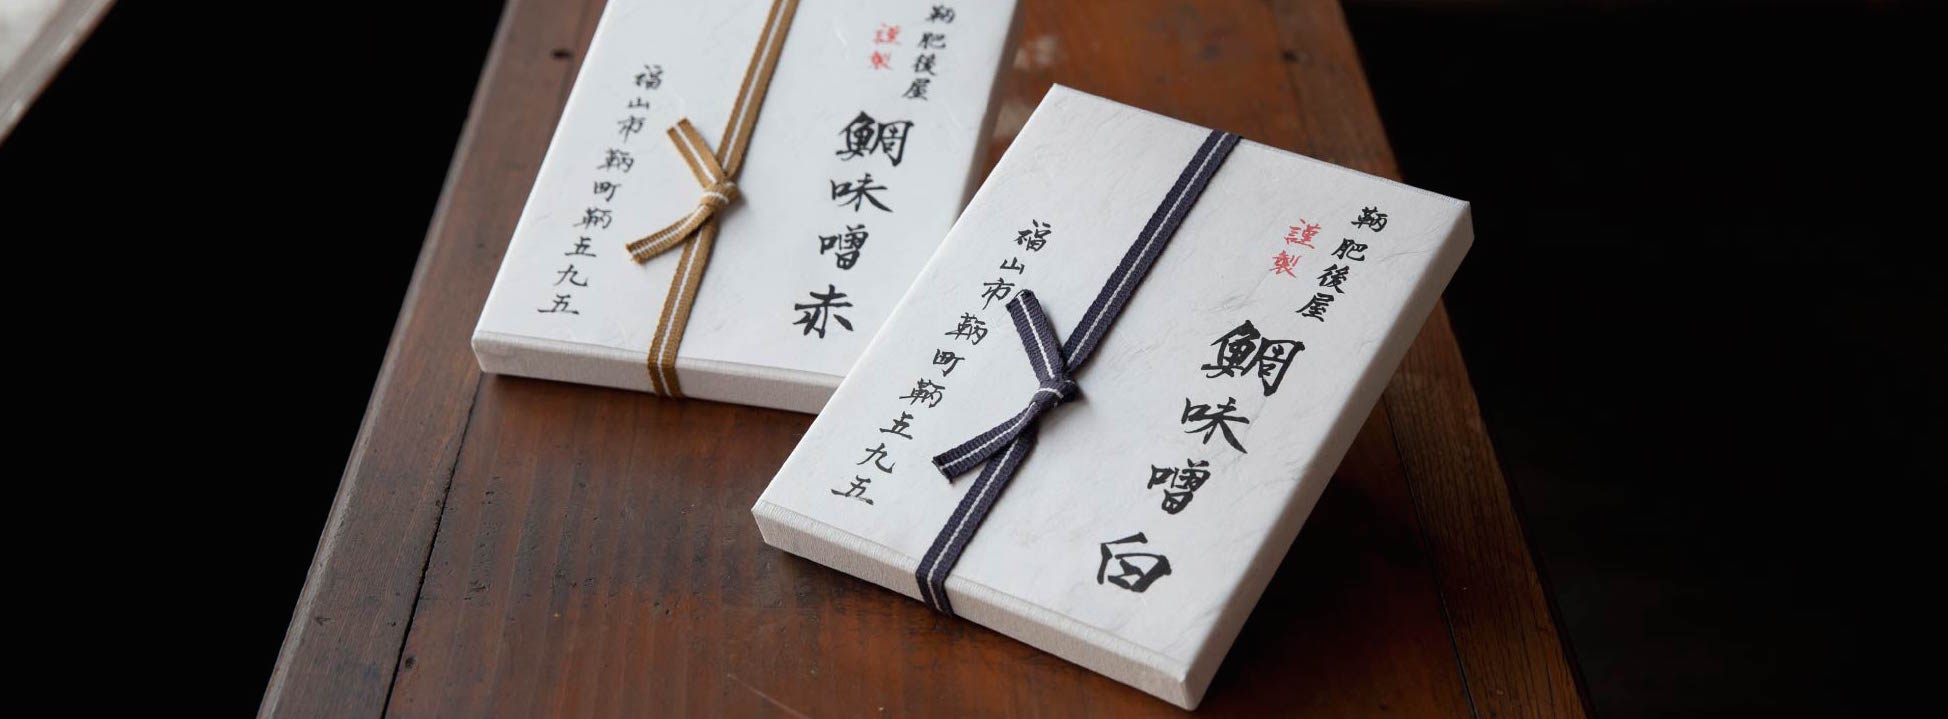 鞆肥後屋
謹製
鯛味噌赤
福山市鞆町鞆五九五
鞆肥後屋
謹製
鯛味噌白
福山市鞆町鞆五九五